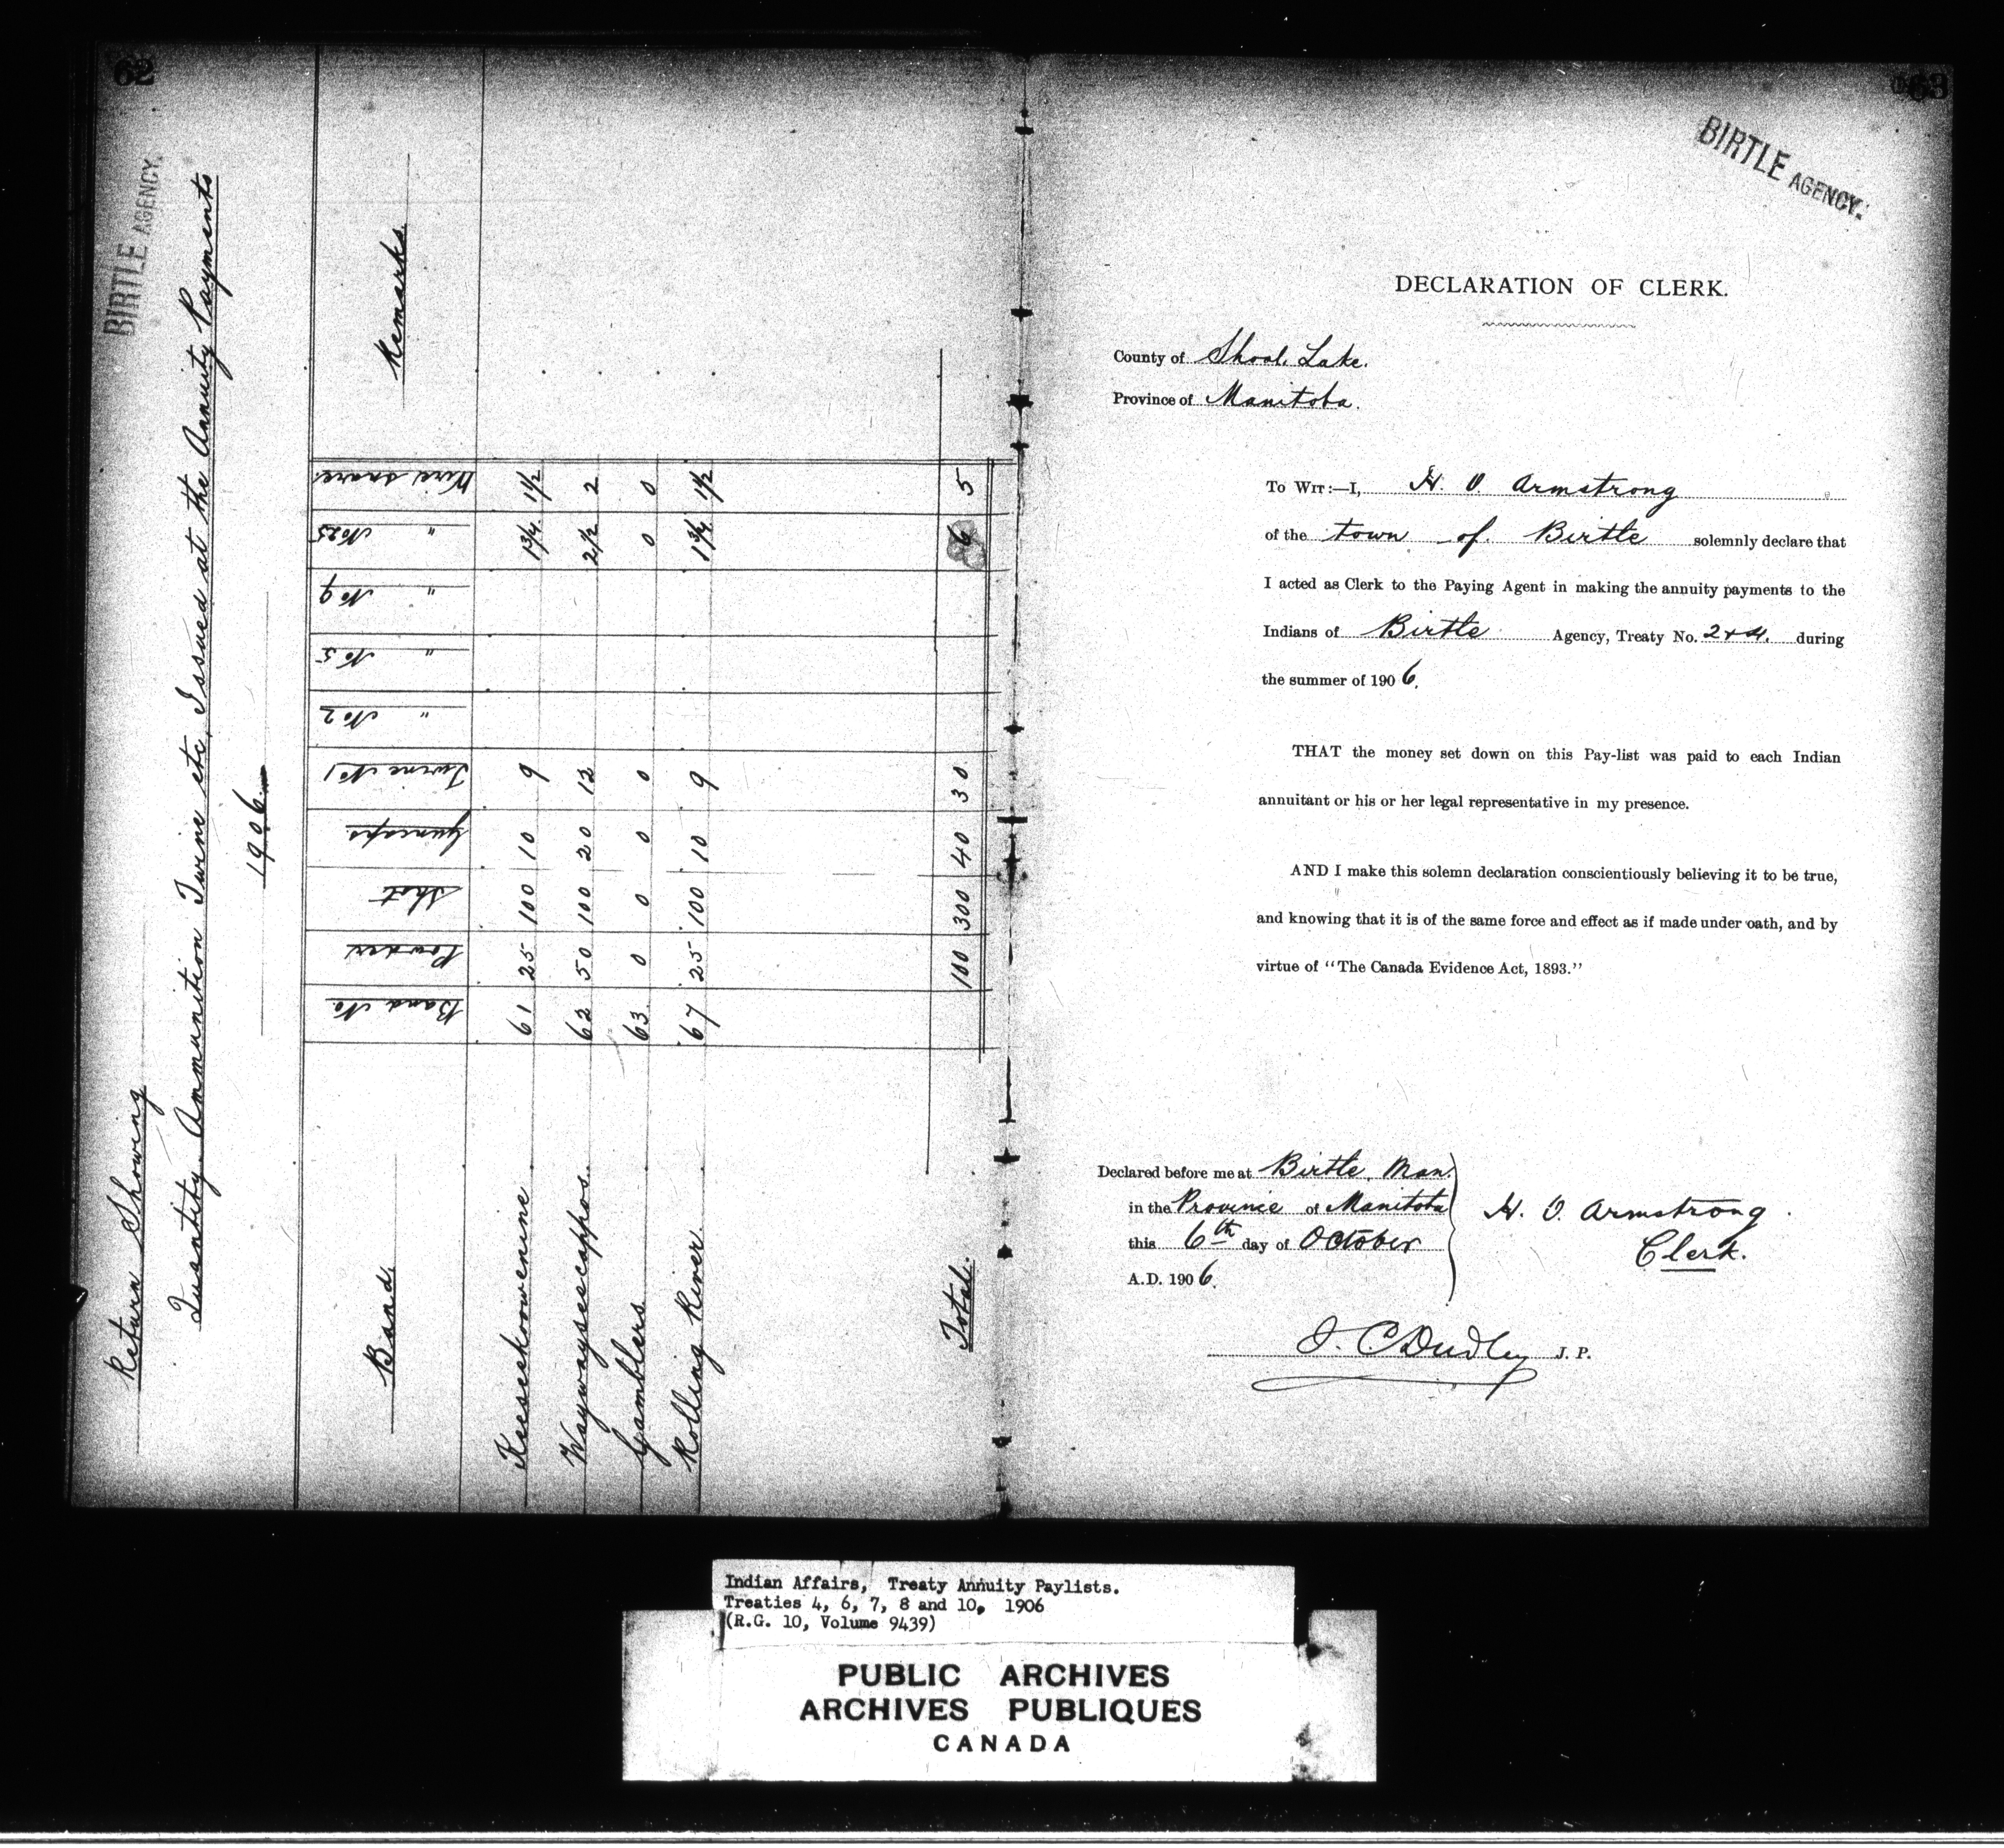 62
BIRTLE AGENCY.
Return Showing
Quantity Ammunition Twine etc, Issued at the Annuity Payments
1906
Band. Band No. Powder Shot Guncaps. Twine No 1 " No 2 " No 5 " No 9 " No 25 Wire snare. Remarks.
Keeseekoowenine 61 25 100 10 9 1¾ 1½
Waywayseecappos. 62 50 100 20 12 2½ 2
Gamblers 63 0 0 0 0 0 0
Rolling River. 67 25 100 10 9 1¾ 1½
Total. 100 300 40 30 6 5
63
BIRTLE AGENCY.
DECLARATION OF CLERK.
County of Shoal Lake.
Province of Manitoba.
To Wit:—I, H. O. Armstrong
of the town of Birtle solemnly declare that
I acted as Clerk to the Paying Agent in making the annuity payments to the
Indians of Birtle Agency, Treaty No. 2 + 4. during
the summer of 1906.
THAT the money set down on this Pay-list was paid to each Indian
annuitant or his or her legal representative in my presence.
AND I make this solemn declaration conscientiously believing it to be true,
and knowing that it is of the same force and effect as if made under oath, and by
virtue of "The Canada Evidence Act, 1893."
Declared before me at Birtle, Man.
in the Province of Manitoba
this 6th day of October
A.D. 1906.
H. O. Armstrong.
Clerk.
J. C. Dudley J. P.
Indian Affairs, Treaty Annuity Paylists.
Treaties 4, 6, 7, 8 and 10, 1906
(R.G. 10, Volume 9439)
PUBLIC ARCHIVES
ARCHIVES PUBLIQUES
CANADA